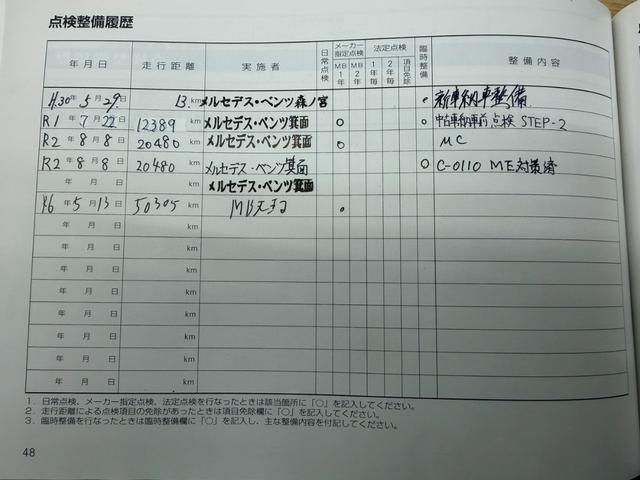 点検整備履歴
年月日 走行距離 実施者 日常点検 メーカー指定点検 MB1年 MB2年 法定点検 1年毎 2年毎 項目免除 臨時整備 整備内容
H30年5月29日 13km メルセデス・ベンツ森ノ宮 新車納車整備
R1年7月22日 12389km メルセデス・ベンツ箕面 ○ ○ 中古車納車前点検 STEP-2
R2年8月8日 20480km メルセデス・ベンツ箕面 ○ MC
R2年8月8日 20480km メルセデス・ベンツ箕面 ○ C-0110 ME対策済
年月日 km メルセデス・ベンツ箕面
R6年5月13日 50305km MB
年月日 km
年月日 km
年月日 km
年月日 km
年月日 km
年月日 km
年月日 km
年月日 km
1. 日常点検、メーカー指定点検、法定点検を行なったときは該当箇所に「○」を記入してください。
2. 走行距離による点検項目の免除があったときは項目免除欄に「○」を記入してください。
3. 臨時整備を行なったときは臨時整備欄に「○」を記入し、主な整備内容を付記してください。
48